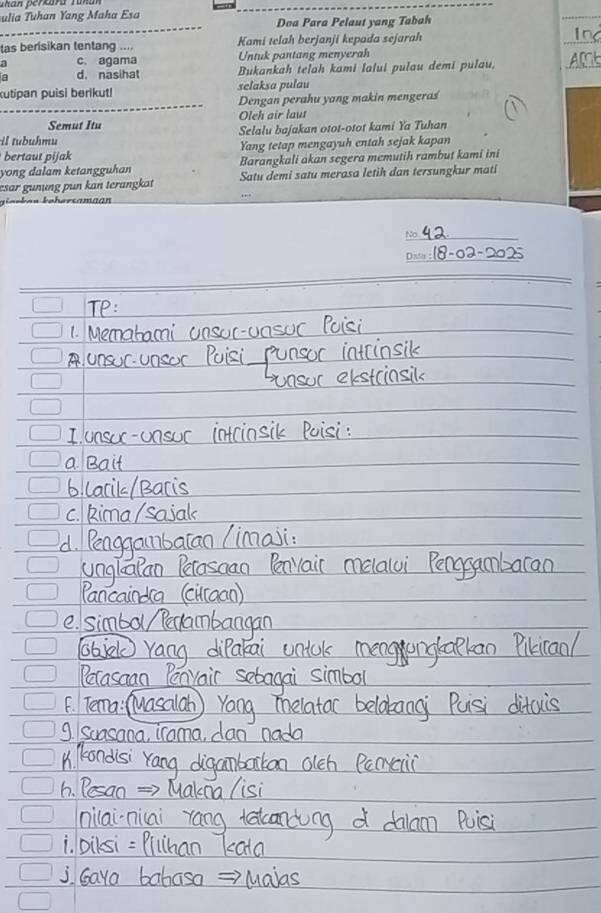 ulia Tuhan Yang Maha Esa
tas berisikan tentang ....
a c. agama
ja d. nasihat
kutipan puisi berikut!
Semut Itu
il tubuhmu
bertaut pijak
yong dalam ketangguhan
esar gunung pun kan terangkat
Doa Para Pelaut yang Tabah
Kami telah berjanji kepada sejarah
Untuk pantang menyerah
Bukankah telah kami lalui pulau demi pulau,
selaksa pulau
Dengan perahu yang makin mengeras
Oleh air laut
Selalu bajakan otot-otot kami Ya Tuhan
Yang tetap mengayuh entah sejak kapan
Barangkali akan segera memutih rambut kami ini
Satu demi satu merasa letih dan tersungkur mati
...
①
No. 42
Date: 18-02-2025
TP:
1. Memahami unsur-unsur Puisi
A. unsur-unsur Puisi unsur intrinsik
unsur ekstrinsik
I. unsur-unsur intrinsik Puisi:
a. Bait
b. larik/Baris
c. Rima/sajak
d. Penggambaran/imaji:
ungkapan Perasaan Penyair melalui Penggambaran
Pancaindra (citraan)
e. simbol/Perlambangan
objek yang dipakai untuk mengungkapkan Pikiran/
Perasaan Penyair sebagai simbol
F. Tema: Masalah yang melatar belakangi Puisi ditulis
g. suasana, irama, dan nada
kondisi yang digambarkan oleh Pemeril
h. Pesan ⇒ Makna/isi
nilai-nilai yang terkandung di dalam Puisi
i. Diksi = Pilihan kata
j. Gaya bahasa ⇒ Majas